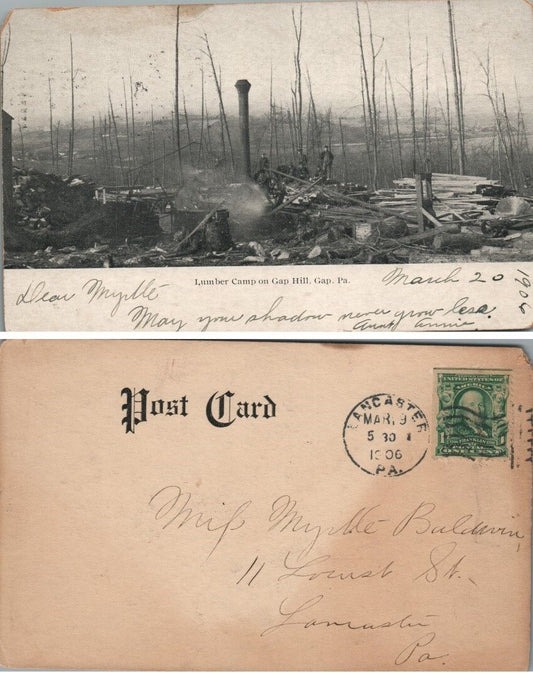 Lumber Camp on Gap Hill, Gap. Pa.
March 20 1906
Dear Myrtle
May your shadow never grow less.
Aunt Annie.
Post Card
LANCASTER
MAR. 9
5 30
1906
PA.
UNITED STATES OF AMERICA
1 1
FRANKLIN
ONE CENT
Miss Myrtle Baldwin,
11 Locust St.
Lancaster
Pa.